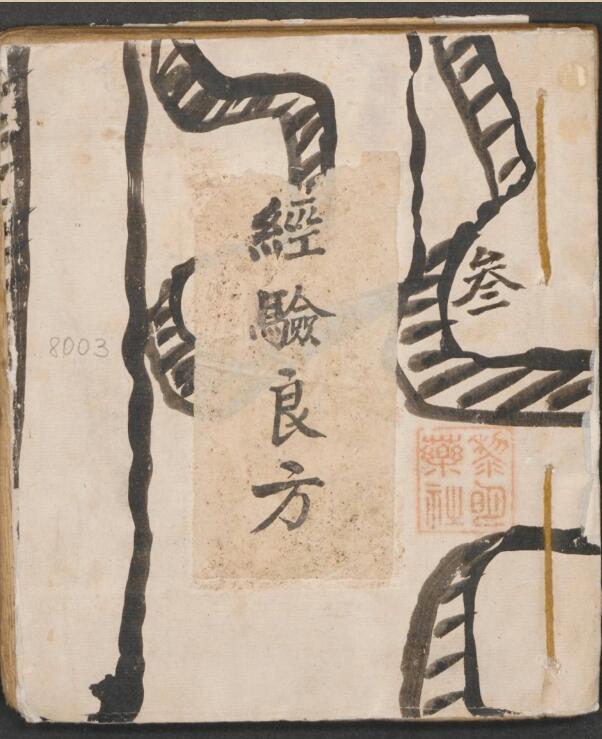 經驗良方
叁
黎明
藥社
8003